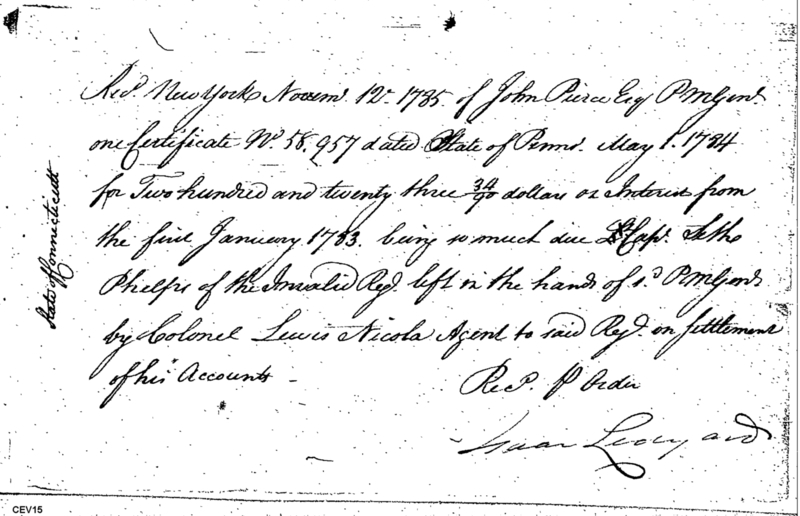 Recd. New York Novem. 12. 1785 of John Pierce Esq PMGenl.
one Certificate No. 58.957 dated State of Penns. May 1. 1784
for Two hundred and twenty three 34/90 dollars on Interest from
the first January 1783. being so much due Capt. Seth
Phelps of the Invalid Regt. left in the hands of sd. PMGenl.
by Colonel Lewis Nicola Agent to said Regt. on settlement
of his Accounts -
Recd. P Order
Isaac Ledyard
State of Connecticutt
CEV15